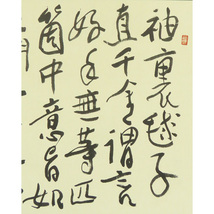 袖裏毬子
直千金謂言
好手無等匹
箇中意旨如